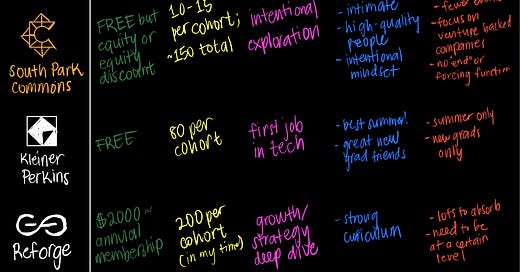 FREE but
equity or
equity
discount
10-15
per cohort;
~150 total
intentional
exploration
- intimate
- high-quality
people
- intentional
mindset
- focus on
venture backed
companies
- no "end" or
forcing function
South Park
Commons
FREE
80 per
cohort
first job
in tech
- best summer!
- great new
grad friends
- summer only
- new grads
only
Kleiner
Perkins
$2000 ~
annual
membership
200 per
cohort
(in my time)
growth/
strategy
deep dive
- strong
curriculum
- lots to absorb
- need to be
at a certain
level
Reforge